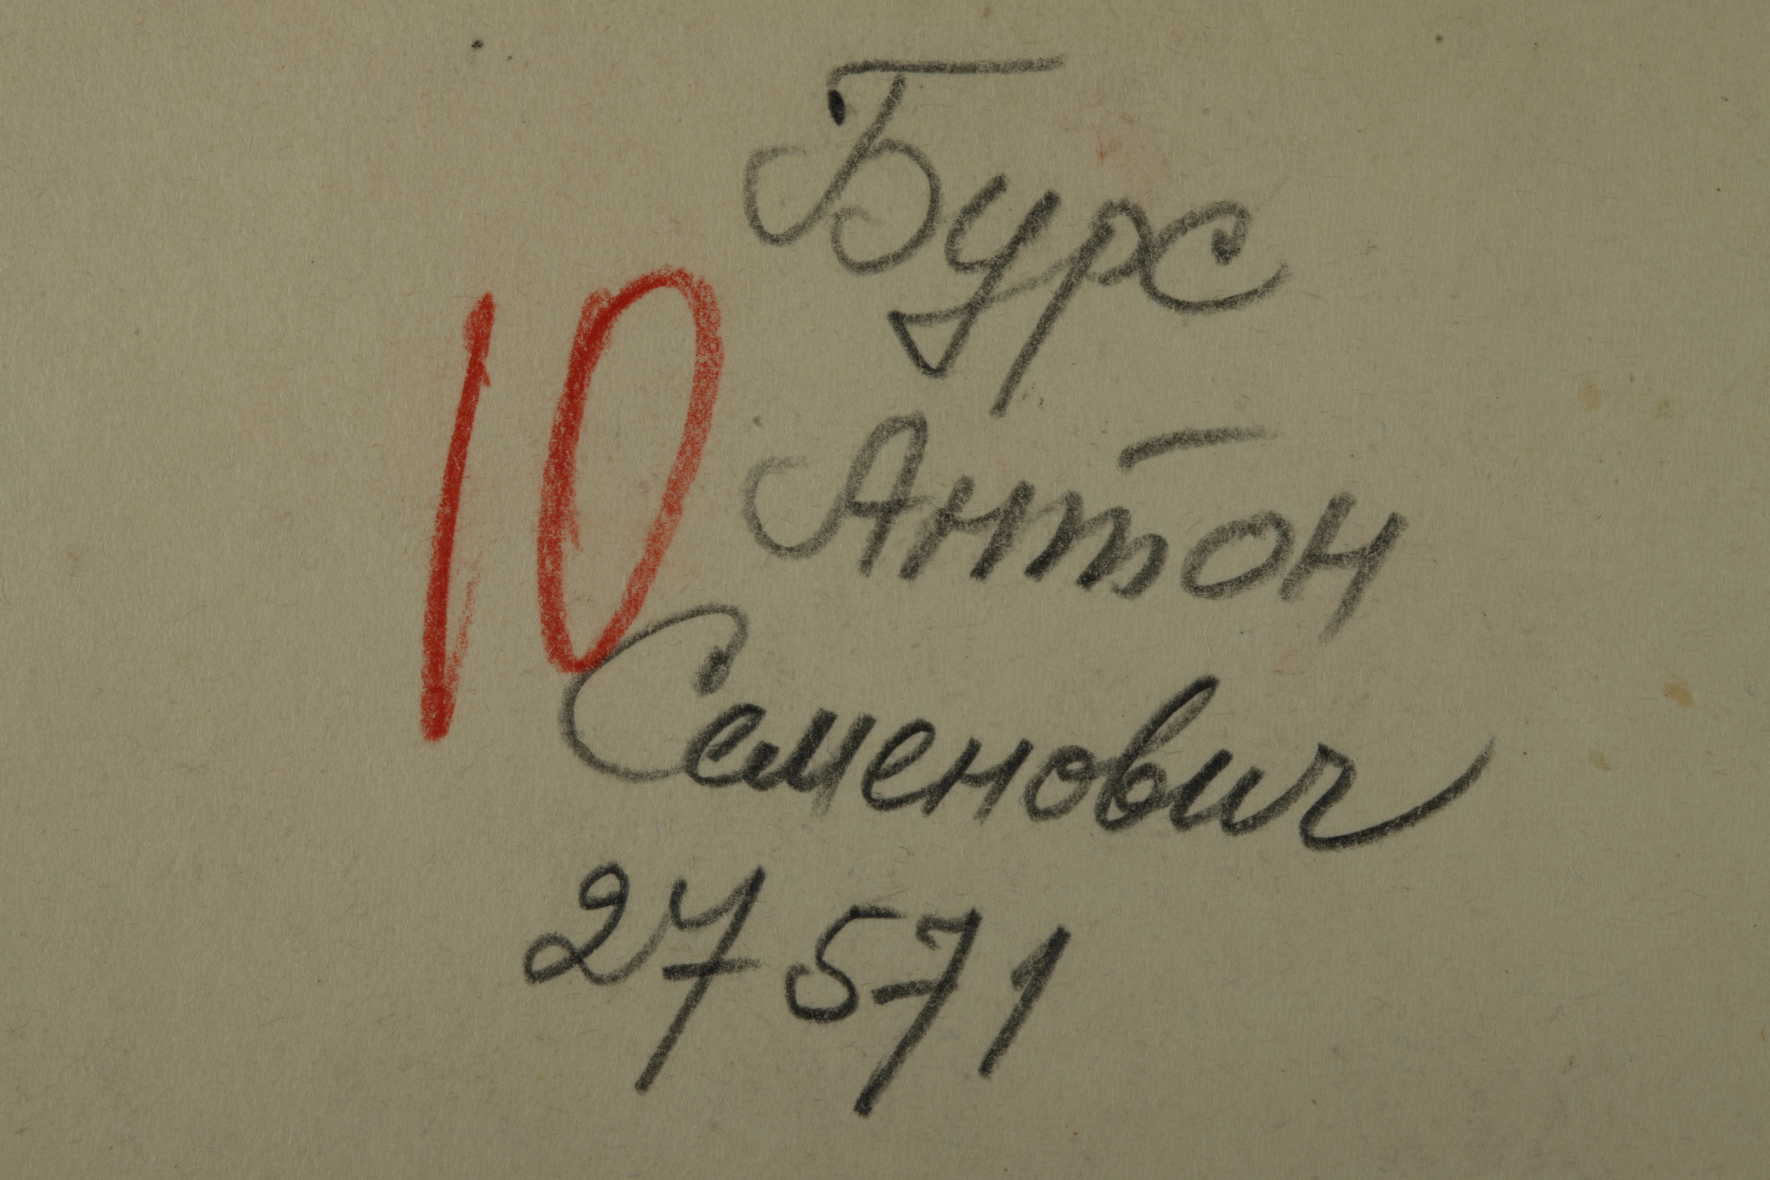 Бурс
10
Антон
Семенович
27571